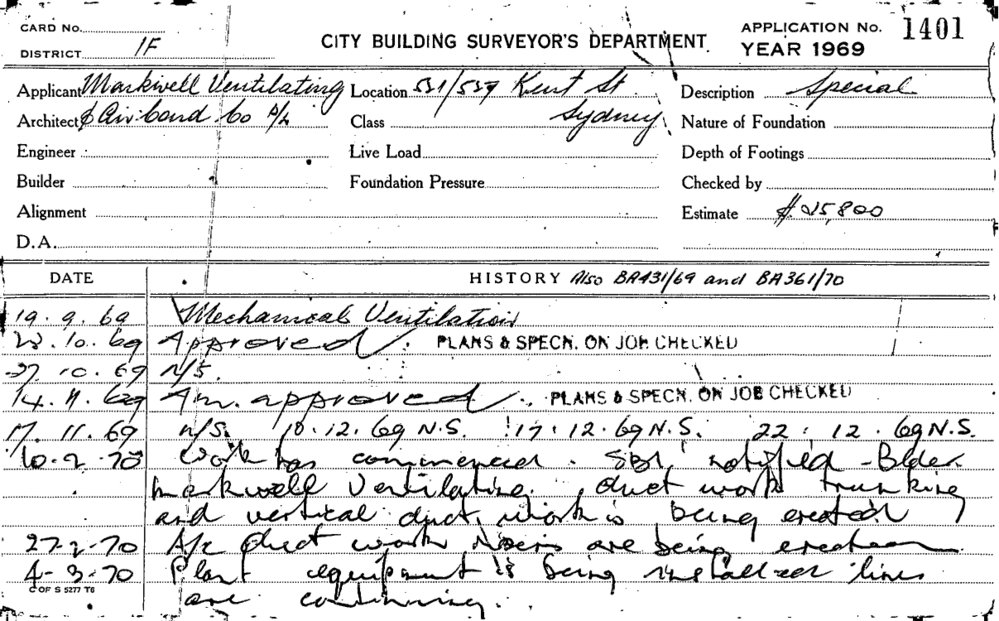 CARD No.
DISTRICT 1F
CITY BUILDING SURVEYOR'S DEPARTMENT.
APPLICATION No. 1401
YEAR 1969
Applicant Markwell Ventilating Location 531/537 Kent St Description Special
Architect & Aircond Co P/L Class Sydney Nature of Foundation
Engineer Live Load Depth of Footings
Builder Foundation Pressure Checked by
Alignment Estimate $15,800
D.A.
DATE HISTORY Also BA431/69 and BA361/70
19.9.69 Mechanical Ventilation
10.69 Approved. PLANS & SPECN. ON JOB CHECKED
27.10.69 N/S.
14.11.69 Am. approved. PLANS & SPECN. ON JOB CHECKED
17.11.69 N/S. 10.12.69 N.S. 17.12.69 N.S. 22.12.69 N.S.
10.2.70 Work has commenced. notified - Blder
Markwell Ventilating. duct work trunking
and vertical duct work is being erected
27.2.70 A/c duct work are being
4-3-70 Plant equipment is being installed lines
are continuing.
C OF S 5277 T6